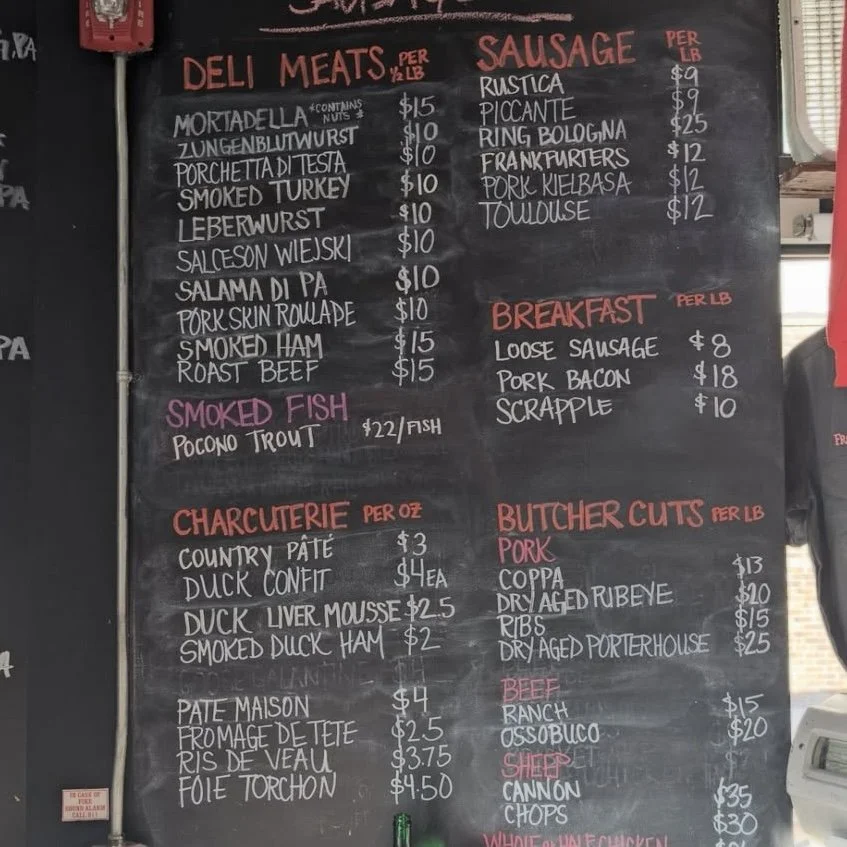 DELI MEATS PER ½ LB
MORTADELLA *CONTAINS NUTS* $15
ZUNGENBLUTWURST $10
PORCHETTA DI TESTA $10
SMOKED TURKEY $10
LEBERWURST $10
SALCESON WIEJSKI $10
SALAMA DI PA $10
PORK SKIN ROULADE $10
SMOKED HAM $15
ROAST BEEF $15
SMOKED FISH
POCONO TROUT $22/FISH
CHARCUTERIE PER OZ
COUNTRY PÂTÉ $3
DUCK CONFIT $4EA
DUCK LIVER MOUSSE $2.5
SMOKED DUCK HAM $2
PATE MAISON $4
FROMAGE DE TETE $2.5
RIS DE VEAU $3.75
FOIE TORCHON $4.50
SAUSAGE PER LB
RUSTICA $9
PICCANTE $9
RING BOLOGNA $25
FRANKFURTERS $12
PORK KIELBASA $12
TOULOUSE $12
BREAKFAST PER LB
LOOSE SAUSAGE $8
PORK BACON $18
SCRAPPLE $10
BUTCHER CUTS PER LB
PORK
COPPA $13
DRY AGED RIBEYE $20
RIBS $15
DRY AGED PORTERHOUSE $25
BEEF
RANCH $15
OSSOBUCO $20
SHEEP
CANNON $35
CHOPS $30
WHOLE OR HALF CHICKEN
PA
PA
IN CASE OF
FIRE
SOUND ALARM
CALL 911